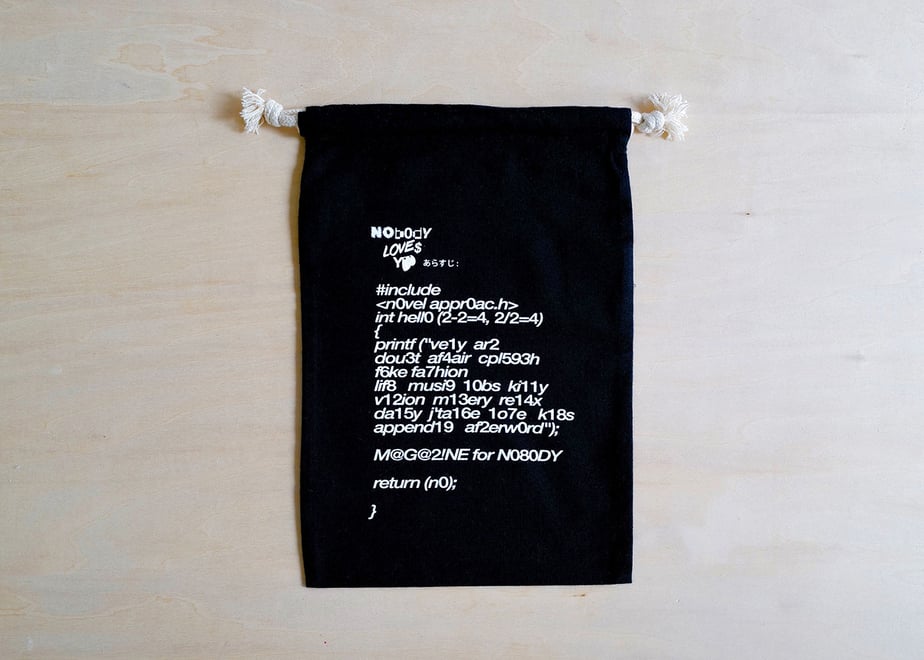 NObodY
LOVE$
Y あらすじ:
#include
<n0vel appr0ac.h>
int hell0 (2-2=4, 2/2=4)
{
printf ("ve1y ar2
dou3t af4air cpl593h
f6ke fa7hion
lif8 musi9 10bs ki11y
v12ion m13ery re14x
da15y j'ta16e 1o7e k18s
append19 af2erw0rd");
M@G@2!NE for N080DY
return (n0);
}